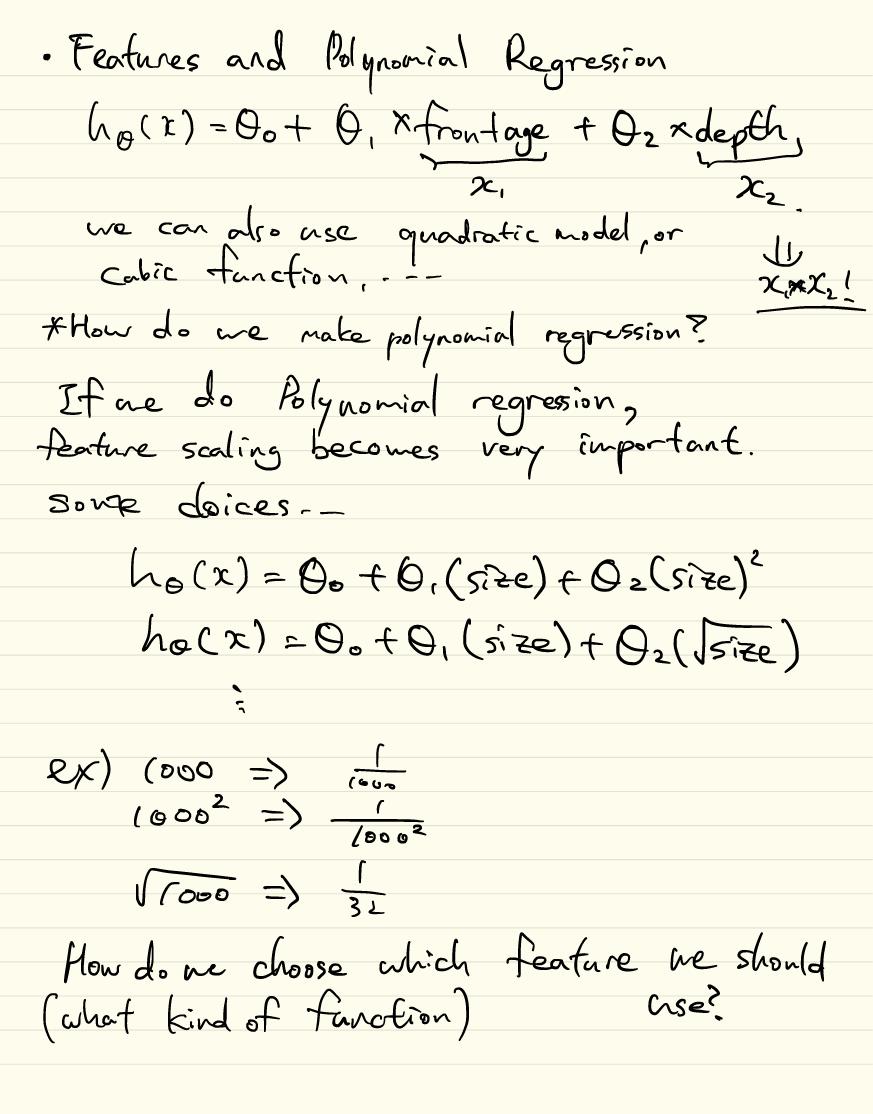 · Features and Polynomial Regression
hθ(x) = θ₀ + θ₁ × frontage + θ₂ × depth
x₁ x₂.
we can also use quadratic model, or
cubic function, . ---
⇓
x₁*x₂!
*How do we make polynomial regression?
If we do Polynomial regression,
feature scaling becomes very important.
some choices. --
hθ(x) = θ₀ + θ₁(size) + θ₂(size)²
hθ(x) = θ₀ + θ₁(size) + θ₂(√size)
⋮
ex) 1000 => 1/1000
1000² => 1/1000²
√1000 => 1/32
How do we choose which feature we should
(what kind of function) use?